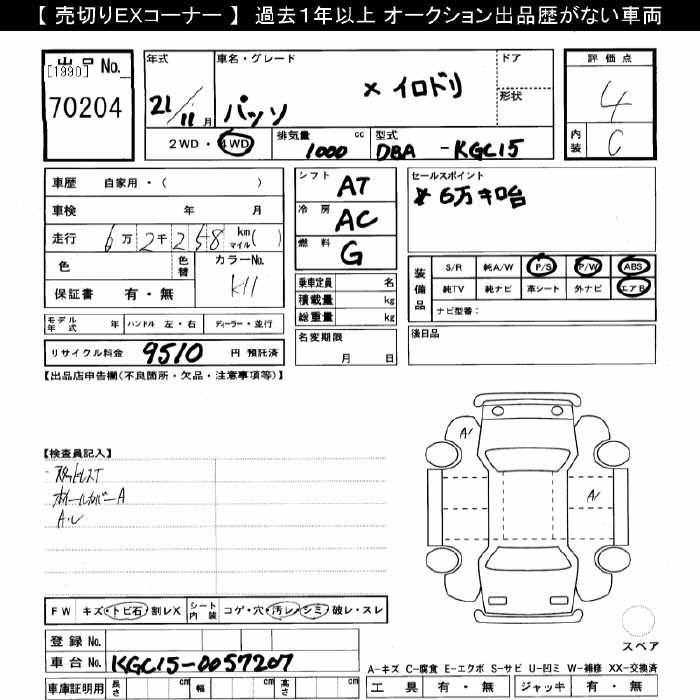 【 売切りEXコーナー 】 過去1年以上 オークション出品歴がない車両
出品 No.
[1990]
70204
年式
21/11月
車名・グレード
パッソ
X イロドリ
ドア
形状
2WD・4WD
排気量
1000 cc
型式
DBA -KGC15
評価点
4
内装
C
車歴 自家用・( )
車検 年 月
走行 6万2千258 km マイル( )
色 色替 カラーNo.
K11
保証書 有・無
モデル年式 年 ハンドル 左・右 ディーラー・並行
リサイクル料金 9510 円 預託済
シフト AT
冷房 AC
燃料 G
乗車定員 名
積載量 kg
総重量 kg
名変期限
月 日
セールスポイント
☆ 6万キロ台
装備品
S/R 純A/W P/S P/W ABS
純TV 純ナビ 革シート 外ナビ エアB
ナビ型番:
後日品
【出品店申告欄(不良箇所・欠品・注意事項等)】
【検査員記入】
スタッドレスT
ホイールカバーA
A・U
A1
A1
FW キズ・トビ石・割レX シート内装 コゲ・穴・汚レ・シミ・破レ・スレ
登録 No.
車台 No. KGC15-0057207
車庫証明用 長さ cm 幅 cm 高さ cm
スペア
A-キズ C-腐食 E-エクボ S-サビ U-凹ミ W-補修 XX-交換済
工具 有・無 ジャッキ 有・無